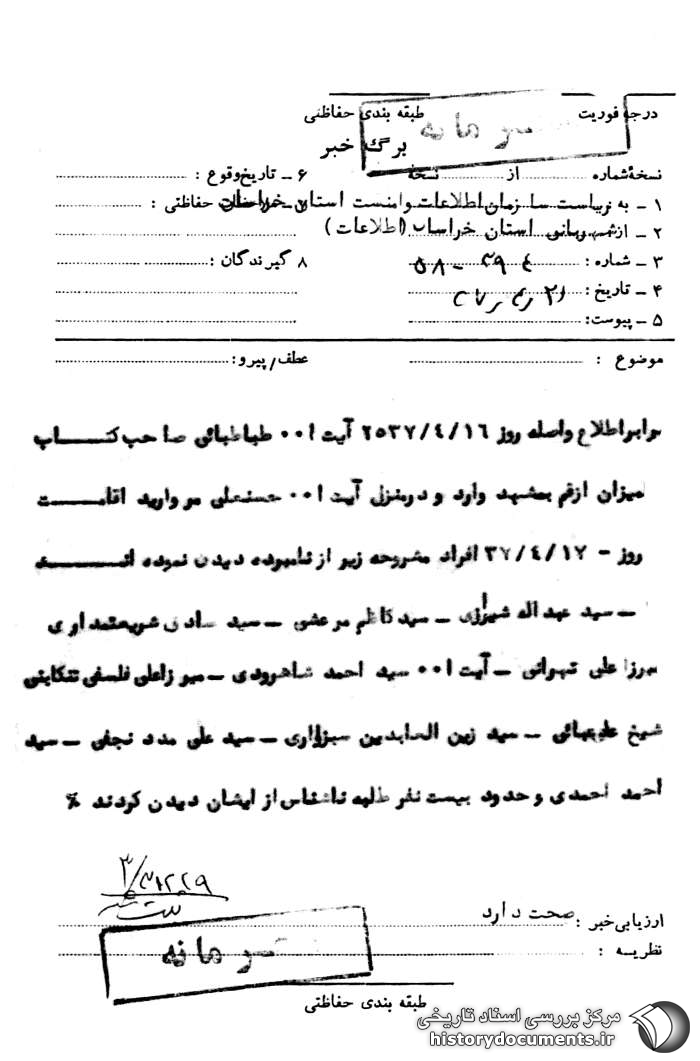 درجه فوریت
طبقه بندی حفاظتی
محرمانه
برگ خبر
نسخهٔ شماره از نسخه
۶ – تاریخ وقوع :
۱ – به ریاست سازمان اطلاعات وامنیت استان خراسان
۷ – حفاظتی :
۲ – از شهربانی استان خراسان (اطلاعات)
۳ – شماره : ۵۸ – ۳۹٤
۸ گیرندگان :
۴ – تاریخ :
۵ – پیوست:
موضوع :
عطف/پیرو:
برابراطلاع واصله روز ۲۵۳۷/٤/۱٦ آیت ا۰۰ طباطبائی صاحب کتاب
المیزان ازقم بمشهد وارد و درمنزل آیت ا۰۰ حسنعلی مروارید اقامت
روز – ۳۷/٤/۱۷ افراد مشروحه زیر از نامبرده دیدن نموده انـد
– سید عبداله شیرازی – سید کاظم مرعشی – سید شریعتمداری
میرزا علی تهرانی – آیت ا۰۰ سید احمد شاهرودی – میرزاعلی فلسفی تنکابنی
شیخ – سید زین العابدین سبزواری – سید علی مدد نجفی – سید
احمد احمدی و حدود بیست نفر طلبه ناشناس از ایشان دیدن کردند ٪
ارزیابی خبر : صحت دارد
نظریه :
محرمانه
طبقه بندی حفاظتی
مرکز بررسی اسناد تاریخی
historydocuments.ir